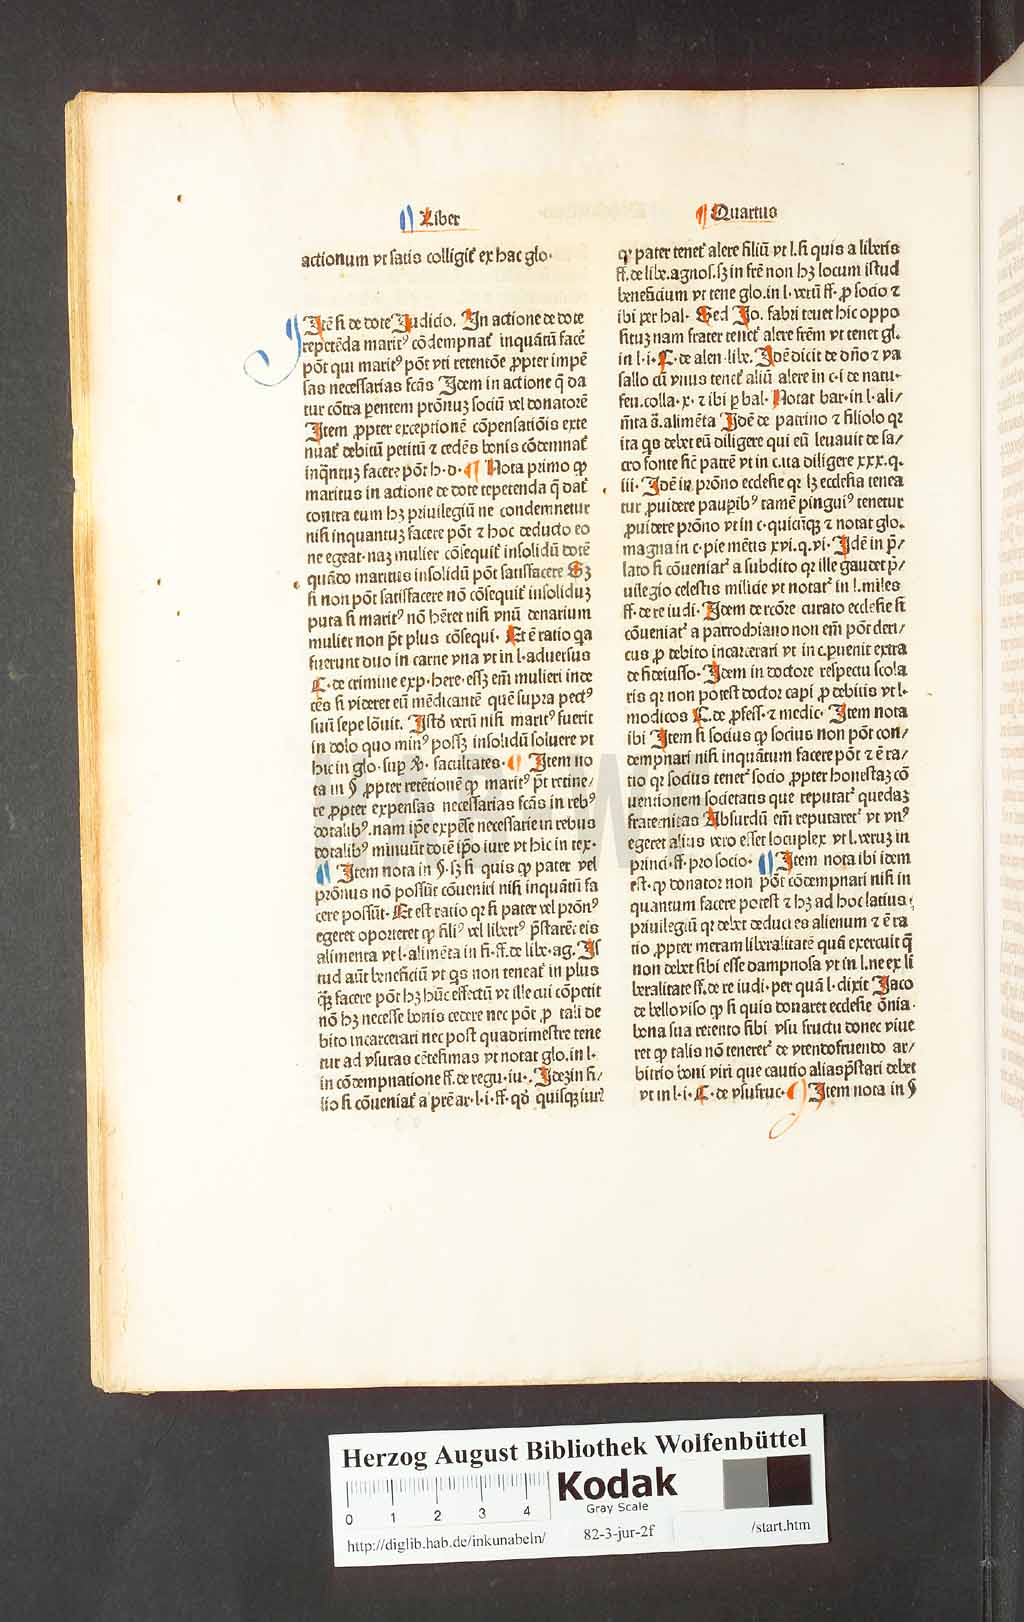 ¶ Liber
¶ Quartus
actionum vt satis colligit̉ ex hac glo·
Itē si de dote Iudicio. In actione de dote
repetēda marit⁹ cōdempnat̉ inquātū facē
pōt qui marit⁹ pōt vti retentōe ꝓpter impē
sas necessarias fcās Item in actione q̄ da
tur cōtra parentem prōnuꝫ sociū vel donatorē
Item ꝓpter exceptionē cōpensatiōis exte
nuat̉ debitū petitū ⁊ cedēs bonis cōdemnat̉
inq̄ntuꝫ facere pōt h·d· ¶ Nota primo ꝙ
maritus in actione de dote repetenda q̄ dat̉
contra eum hꝫ priuilegiū ne condemnetur
nisi inquantuꝫ facere pōt ⁊ hoc deducto eo
ne egeat· naꝫ mulier cōsequit̉ insolidū dotē
quādo maritus insolidū pōt satisfacere Sꝫ
si non pōt satisfacere nō cōsequit̉ insoliduꝫ
puta si marit⁹ nō hēret nisi vnū denarium
mulier non p̄t plus cōsequi· Et ē ratio qa
fuerunt duo in carne vna vt in l·aduersus
C·de crimine exp·here·essꝫ em̄ mulieri inde
cēs si videret eū mēdicantē quē supra pect⁹
suū sepe lōuit. Istō verū nisi marit⁹ fuerit
in dolo quo min⁹ possꝫ insolidū soluere vt
hic in glo·sup facultates· ¶ Item no
ta in § ꝓpter retētionē ꝙ marit⁹ p̄t retine/
re ꝓpter expensas necessarias fcās in reb⁹
dotalib⁹.nam ip̄e expēse necessarie in rebus
dotalib⁹ minuūt dotē ip̄o iure vt hic in tex·
¶ Item nota in §·sꝫ si quis ꝙ pater vel
prōnus nō possūt cōueniri nisi inquātū fa
cere possūt· Et est ratio qꝛ si pater vel prōn⁹
egeret oporteret ꝙ fili⁹ vel libert⁹ p̄staret eis
alimenta vt l·alimēta in fi·ff·de libe·ag· Is
tud aūt beneficiū vt qͥs non teneat̉ in plus
q̄ꝫ facere pōt hꝫ hūc effectū vt ille cui cōpetit
nō hꝫ necesse bonis cedere nec pōt ꝓ tali de
bito incarcerari nec post quadrimestre tene
tur ad vsuras cētesimas vt notat glo.in l·
in cōdempnatione ff.de regu·iu·. Idēꝫ in fi/
lio si cōueniat̉ a prē ar·l·i·ff·qd̓ quisqꝫ iur̉
qꝛ pater tenet̉ alere filiū vt l.si quis a liberis
ff.de libe.agnos.sꝫ in frē non hꝫ locum istud
beneficium vt tene glo.in l·verū ff·ꝓ socio ⁊
ibi per bal· Sed Io. fabri tenet hic oppo
situꝫ nam frater tenet̉ alere frēm vt tenet gl.
in l·i·C·de alen·libe. Idē dicit de dn̄o ⁊ va
sallo cū vnus tenet̉ aliū alere in c·i de natu·
feu.colla·x·⁊ ibi ꝑ bal· Notat bar·in l·ali/
mēta §.alimēta Idē de patrino ⁊ filiolo qꝛ
ita qͥs debet eū diligere qui eū leuauit de sa/
cro fonte sic̄ patrē vt in c.ita diligere xxx.q.
iii· Idē in prōno ecclesie qꝛ lꝫ ecclesia tenea
tur ꝓuidere pauꝑib⁹ tamē pingui⁹ tenetur
ꝓuidere prōno vt in c·quicūqꝫ ⁊ notat glo.
magna in c·pie mētis xvi.q.vi· Idē in p̄/
lato si cōueniat̉ a subdito qꝛ ille gaudet p̄/
uilegio celestis milicie vt notat̉ in l.miles
ff.de re iudi· Item de rcōre curato ecclesie si
cōueniat̉ a parrochiano non em̄ pōt deri/
cus ꝓ debito incarcerari vt in c.ꝑuenit extra
de fideiusso· Item in doctore respectu scola
ris qꝛ non potest doctor capi ꝓ debitis vt l·
modicos C.de ꝓfess·⁊ medic· Item nota
ibi Item si socius ꝙ socius non pōt con/
dempnari nisi inquātum facere pōt ⁊ ē ra/
tio qꝛ socius tenet̉ socio ꝓpter honestaꝫ cō
uentionem societatis que reputat̉ quedaꝫ
fraternitas Absurdū em̄ reputaret̉ vt vn⁹
egeret alius vero esset locuplex vt l.veruꝫ in
princi·ff·pro socio· ¶ Item nota ibi idem
est·ꝙ donator non pōt cōdempnari nisi in
quantum facere potest ⁊ hꝫ ad hoc latius
priuilegiū qꝛ debet deduci es alienum ⁊ ē ra
tio ꝓpter meram liberalitatē quā exercuit q̄
non debet sibi esse dampnosa vt in l.ne ex li
beralitate ff.de re iudi·per quā l·dixit Iaco
de belloviso ꝙ si quis donaret ecclesie ōnia·
bona sua retento sibi vsu fructu donec viue
ret ꝙ talis nō teneret̉ de vtendofruendo ar/
bitrio boni viri que cautio alias p̄stari debet
vt in l·i·C·de vsufruc· ¶ Item nota in §
Herzog August Bibliothek Wolfenbüttel
0 1 2 3 4
Kodak
Gray Scale
http://diglib.hab.de/inkunabeln/ 82-3-jur-2f /start.htm